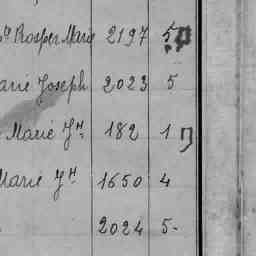 Prosper Marie 2197 5
Marie Joseph 2023 5
Marie Jh 182 1
Marie Jh 1650 4
2024 5-